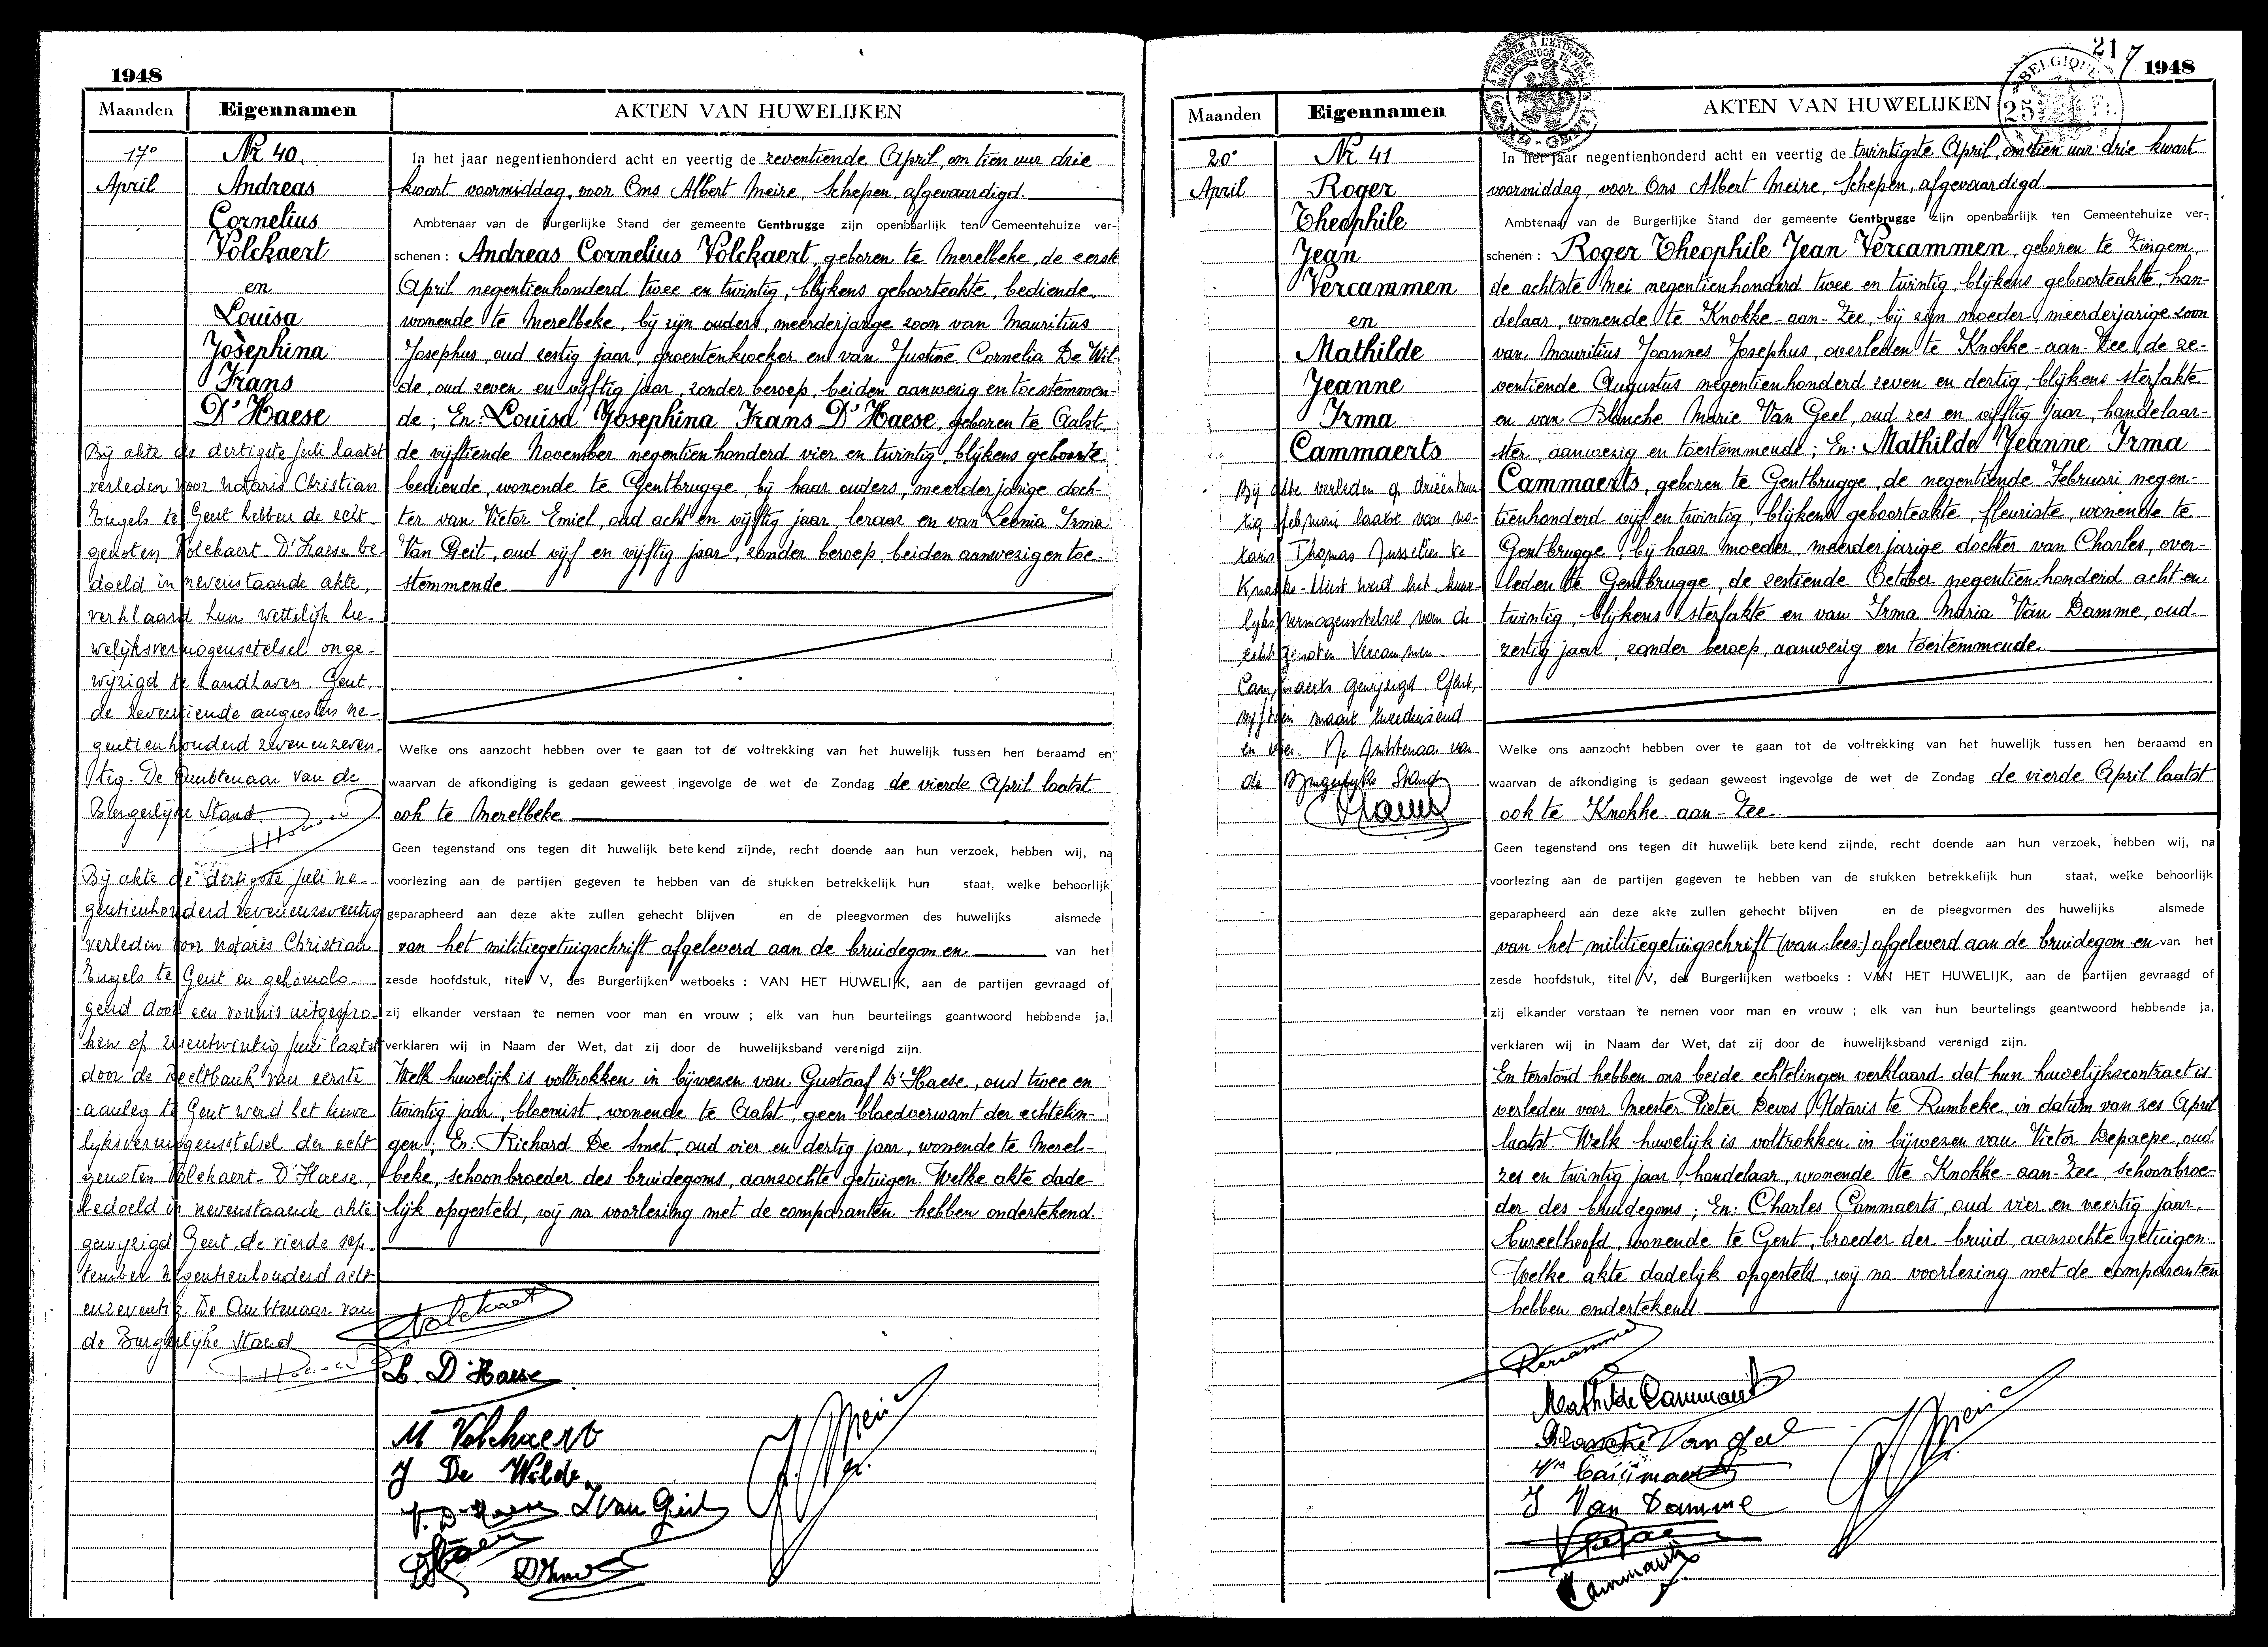 1948
Maanden
Eigennamen
AKTEN VAN HUWELIJKEN
17e
April
Nr 40.
Andreas
Cornelius
Volckaert
en
Louisa
Josephina
Frans
D'Haese
Bij akte de dertigste juli laatst
verleden voor notaris Christian
Engels te Gent hebben de echt-
genoten Volckaert-D'Haese be-
doeld in nevenstaande akte,
verklaard hun wettelijk hu-
welijksvermogensstelsel onge-
wijzigd te handhaven. Gent,
de zeventiende augustus ne-
gentienhonderd zevenenzeven-
tig. De Ambtenaar van de
Burgerlijke Stand
Bij akte de dertigste juli ne-
gentienhonderd zevenenzeventig
verleden voor notaris Christian
Engels te Gent en gehomolo-
geerd door een vonnis uitgespro-
ken op juni laatst
door de Rechtbank van eerste
aanleg te Gent werd het huwe-
lijksvermogensstelsel der echt-
genoten Volckaert-D'Haese,
bedoeld in nevenstaande akte
gewijzigd Gent, de vierde sep-
tember negentienhonderd acht-
enzeventig. De Ambtenaar van
de Burgerlijke Stand
In het jaar negentienhonderd acht en veertig de zeventiende April, om tien uur drie
kwart voormiddag, voor Ons Albert Meire, Schepen, afgevaardigd
Ambtenaar van de Burgerlijke Stand der gemeente Gentbrugge zijn openbaarlijk ten Gemeentehuize ver-
schenen : Andreas Cornelius Volckaert, geboren te Merelbeke, de eerste
April negentienhonderd twee en twintig, blijkens geboorteakte, bediende,
wonende te Merelbeke, bij zijn ouders, meerderjarige zoon van Mauritius
Josephus, oud zestig jaar, groentenkweker en van Justine Cornelia De Wil-
de, oud zeven en vijftig jaar, zonder beroep, beiden aanwezig en toestemmen-
de ; En: Louisa Josephina Frans D'Haese, geboren te Aalst
de vijftiende November negentienhonderd vier en twintig, blijkens geboorte
bediende, wonende te Gentbrugge, bij haar ouders, meerderjarige doch-
ter van Victor Emiel, oud acht en vijftig jaar, leraar en van Leonia Irma
Van Geit, oud vijf en vijftig jaar, zonder beroep, beiden aanwezig en toe-
stemmende
Welke ons aanzocht hebben over te gaan tot de voltrekking van het huwelijk tussen hen beraamd en
waarvan de afkondiging is gedaan geweest ingevolge de wet de Zondag de vierde April laatst
ook te Merelbeke
Geen tegenstand ons tegen dit huwelijk betekend zijnde, recht doende aan hun verzoek, hebben wij, na
voorlezing aan de partijen gegeven te hebben van de stukken betrekkelijk hun staat, welke behoorlijk
geparapheerd aan deze akte zullen gehecht blijven en de pleegvormen des huwelijks alsmede
van het militiegetuigschrift afgeleverd aan de bruidegom en van het
zesde hoofdstuk, titel V, des Burgerlijken wetboeks : VAN HET HUWELIJK, aan de partijen gevraagd of
zij elkander verstaan te nemen voor man en vrouw ; elk van hun beurtelings geantwoord hebbende ja,
verklaren wij in Naam der Wet, dat zij door de huwelijksband verenigd zijn.
Welk huwelijk is voltrokken in bijwezen van Gustaaf D'Haese, oud twee en
twintig jaar, bloemist, wonende te Aalst, geen bloedverwant der echtelin-
gen ; En: Richard De Smet, oud vier en dertig jaar, wonende te Merel-
beke, schoonbroeder des bruidegoms, aanzochte getuigen. Welke akte dade-
lijk opgesteld, wij na voorlezing met de comparanten hebben ondertekend.
Volckaert
L. D'Haese
M Volckaert
J De Wilde
V. D'Haese L Van Geit
21
7 1948
BELGIQUE
Maanden
Eigennamen
AKTEN VAN HUWELIJKEN
20e
April
Nr 41
Roger
Theophile
Jean
Vercammen
en
Mathilde
Jeanne
Irma
Cammaerts
Bij akte verleden op drieëntwin-
tig februari laatst voor no-
taris Thomas Dusselier te
Knokke-Heist werd het huwe-
lijksvermogensstelsel van de
echtgenoten Vercammen-
Cammaerts gewijzigd. Gent,
vijftien maart tweeduizend
en vier. De Ambtenaar van
de Burgerlijke Stand
In het jaar negentienhonderd acht en veertig de twintigste April, om tien uur drie kwart
voormiddag, voor Ons Albert Meire, Schepen, afgevaardigd
Ambtenaar van de Burgerlijke Stand der gemeente Gentbrugge zijn openbaarlijk ten Gemeentehuize ver-
schenen : Roger Theophile Jean Vercammen, geboren te Zingem,
de achtste Mei negentienhonderd twee en twintig, blijkens geboorteakte, han-
delaar, wonende te Knokke-aan-Zee, bij zijn moeder, meerderjarige zoon
van Mauritius Joannes Josephus, overleden te Knokke-aan-Zee, de ze-
ventiende Augustus negentienhonderd zeven en dertig, blijkens sterfakte
en van Blanche Marie Van Geel, oud zes en vijftig jaar, handelaar-
ster, aanwezig en toestemmende ; En: Mathilde Jeanne Irma
Cammaerts, geboren te Gentbrugge, de negentiende Februari negen-
tienhonderd vijf en twintig, blijkens geboorteakte, fleuriste, wonende te
Gentbrugge, bij haar moeder, meerderjarige dochter van Charles, over-
leden te Gentbrugge, de zestiende October negentienhonderd acht en
twintig, blijkens sterfakte en van Irma Maria Van Damme, oud
zestig jaar, zonder beroep, aanwezig en toestemmende.
Welke ons aanzocht hebben over te gaan tot de voltrekking van het huwelijk tussen hen beraamd en
waarvan de afkondiging is gedaan geweest ingevolge de wet de Zondag de vierde April laatst
ook te Knokke-aan-Zee.
Geen tegenstand ons tegen dit huwelijk betekend zijnde, recht doende aan hun verzoek, hebben wij, na
voorlezing aan de partijen gegeven te hebben van de stukken betrekkelijk hun staat, welke behoorlijk
geparapheerd aan deze akte zullen gehecht blijven en de pleegvormen des huwelijks alsmede
van het militiegetuigschrift (van: lees:) afgeleverd aan de bruidegom en van het
zesde hoofdstuk, titel V, des Burgerlijken wetboeks : VAN HET HUWELIJK, aan de partijen gevraagd of
zij elkander verstaan te nemen voor man en vrouw ; elk van hun beurtelings geantwoord hebbende ja,
verklaren wij in Naam der Wet, dat zij door de huwelijksband verenigd zijn.
En terstond hebben ons beide echtelingen verklaard dat hun huwelijkscontract is
verleden voor Meester Pieter Devos, Notaris te Rumbeke, in datum van zes April
laatst. Welk huwelijk is voltrokken in bijwezen van Victor Depaepe, oud
zes en twintig jaar, handelaar, wonende te Knokke-aan-Zee, schoonbroe-
der des bruidegoms ; En: Charles Cammaerts, oud vier en veertig jaar,
bureelhoofd, wonende te Gent, broeder der bruid, aanzochte getuigen.
Welke akte dadelijk opgesteld, wij na voorlezing met de comparanten
hebben ondertekend.
Vercammen
Mathilde Cammaerts
Blanche Van Geel
Cammaerts
J Van Damme
Cammaerts